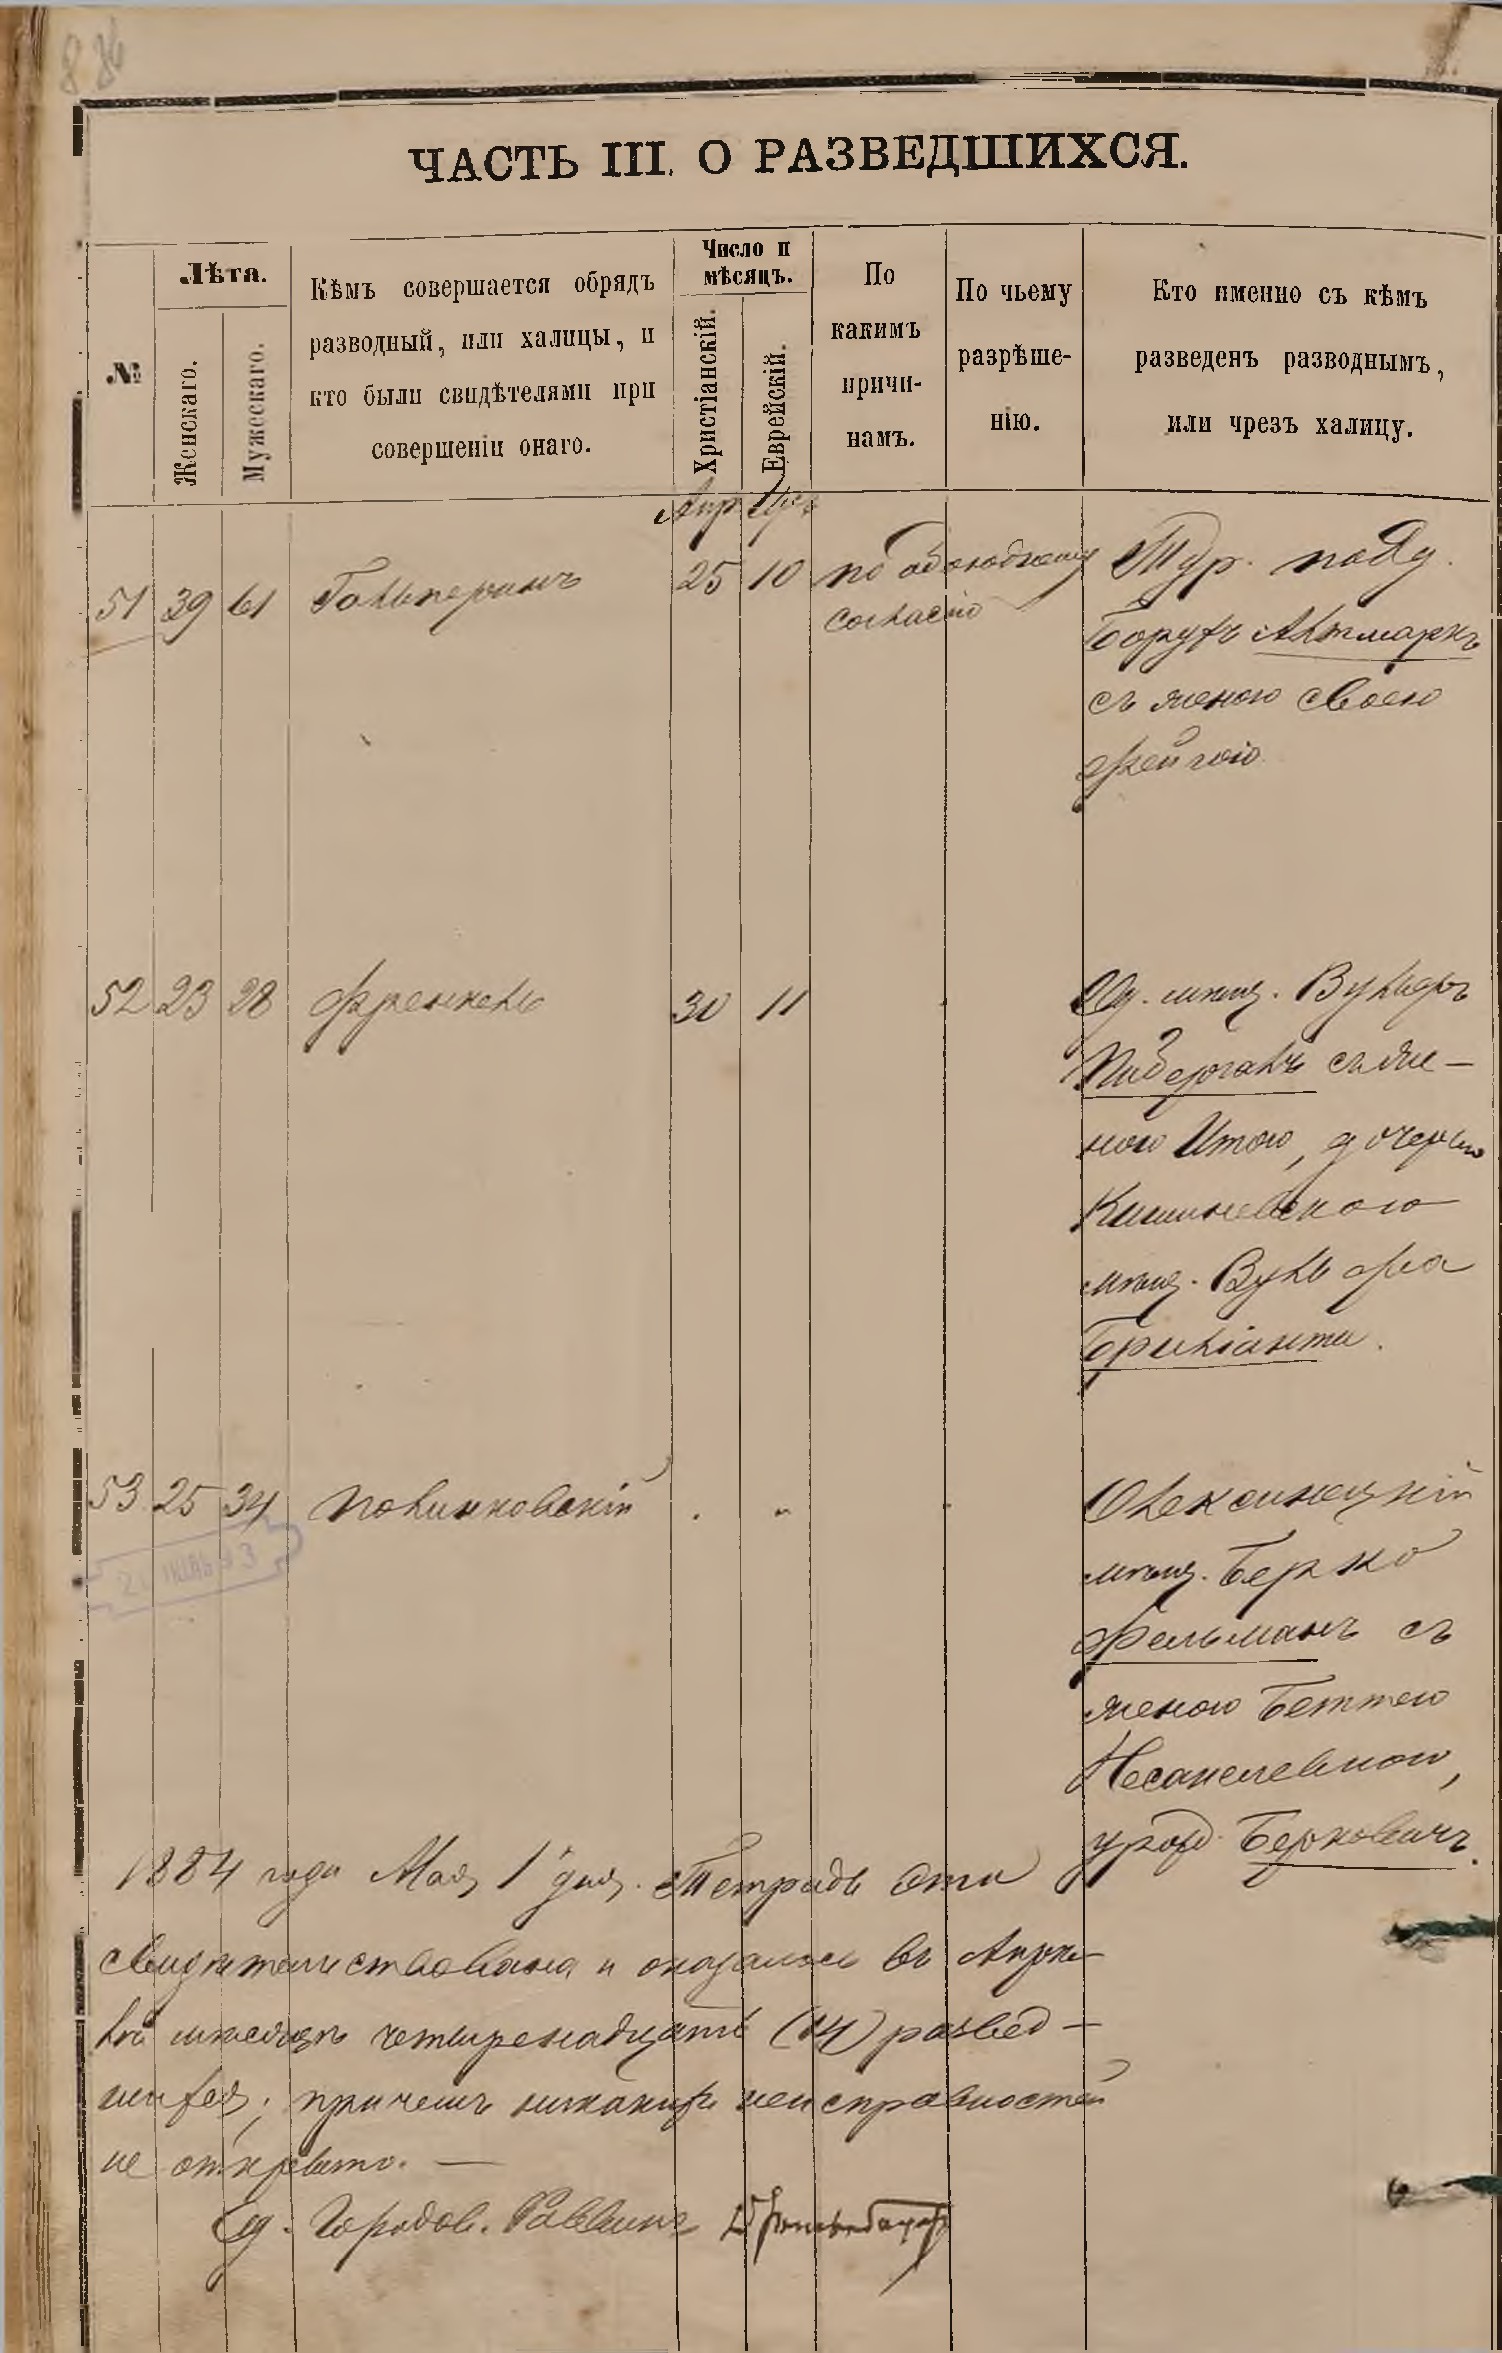 ЧАСТЬ III. О РАЗВЕДШИХСЯ.
№
Лѣта.
Женскаго.
Мужескаго.
Кѣмъ совершается обрядъ
разводный, или халицы, и
кто были свидѣтелями при
совершеніи онаго.
Число и
мѣсяцъ.
Христіанскій.
Еврейскій.
По
какимъ
причи-
намъ.
По чьему
разрѣше-
нію.
Кто именно съ кѣмъ
разведенъ разводнымъ,
или чрезъ халицу.
Апр
51 39 61 Гальперинъ 25 10 по обоюдному
согласію
Тур. подд.
Борухъ Альтмаркъ
съ женою своею
Фейгою.
52 23 28 Френкель 30 11
Од. мѣщ. Вульфъ
съ же-
ною Итою, дочерью
Кишиневскаго
мѣщ. Вульфа
Бриліанта.
53 25 34 Полинковскій
мѣщ. Берко
Фельманъ съ
женою Беттею
урожд. Берковичъ.
1884 года Мая 1 дня. Тетрадь эта
свидѣтельствована и оказалось въ Апрѣ-
лѣ мѣсяцѣ четырнадцать (14) развед-
шихся; причемъ никакихъ неисправностей
не открыто. —
Од. Городов. Раввинъ